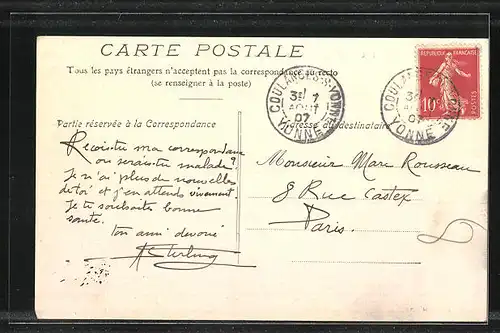 CARTE POSTALE
Tous les pays étrangers n'acceptent pas la correspondance au recto
(se renseigner à la poste)
COULANGES-S-YONNE
31 7
AOUT
07
YONNE
COULANGES
31
AOUT
07
YONNE
REPUBLIQUE FRANÇAISE
10c
POSTES
Partie réservée à la Correspondance
Adresse du destinataire
Reçois-tu ma correspondance
ou serais-tu malade?
Je n'ai plus de nouvelles
de toi et j'en attends vivement
Je te souhaite bonne
santé.
ton ami dévoué
Monsieur Marc Rousseau
8 Rue Castex
Paris.